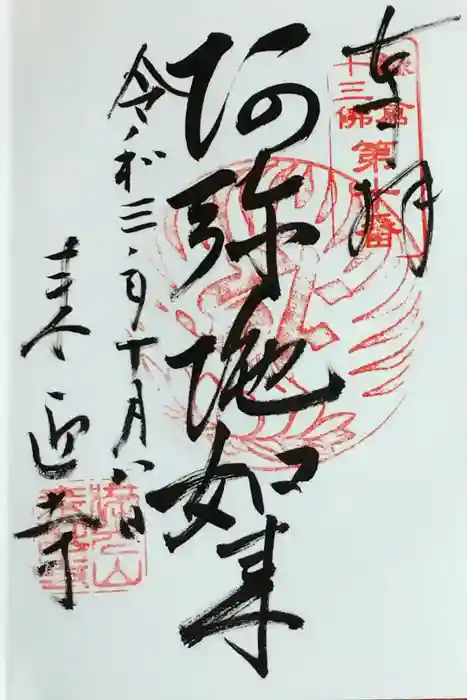 奉拝
鎌倉
十三佛第十番
阿弥陀如来
令和三年十月八日
来迎寺
満光山
来迎寺